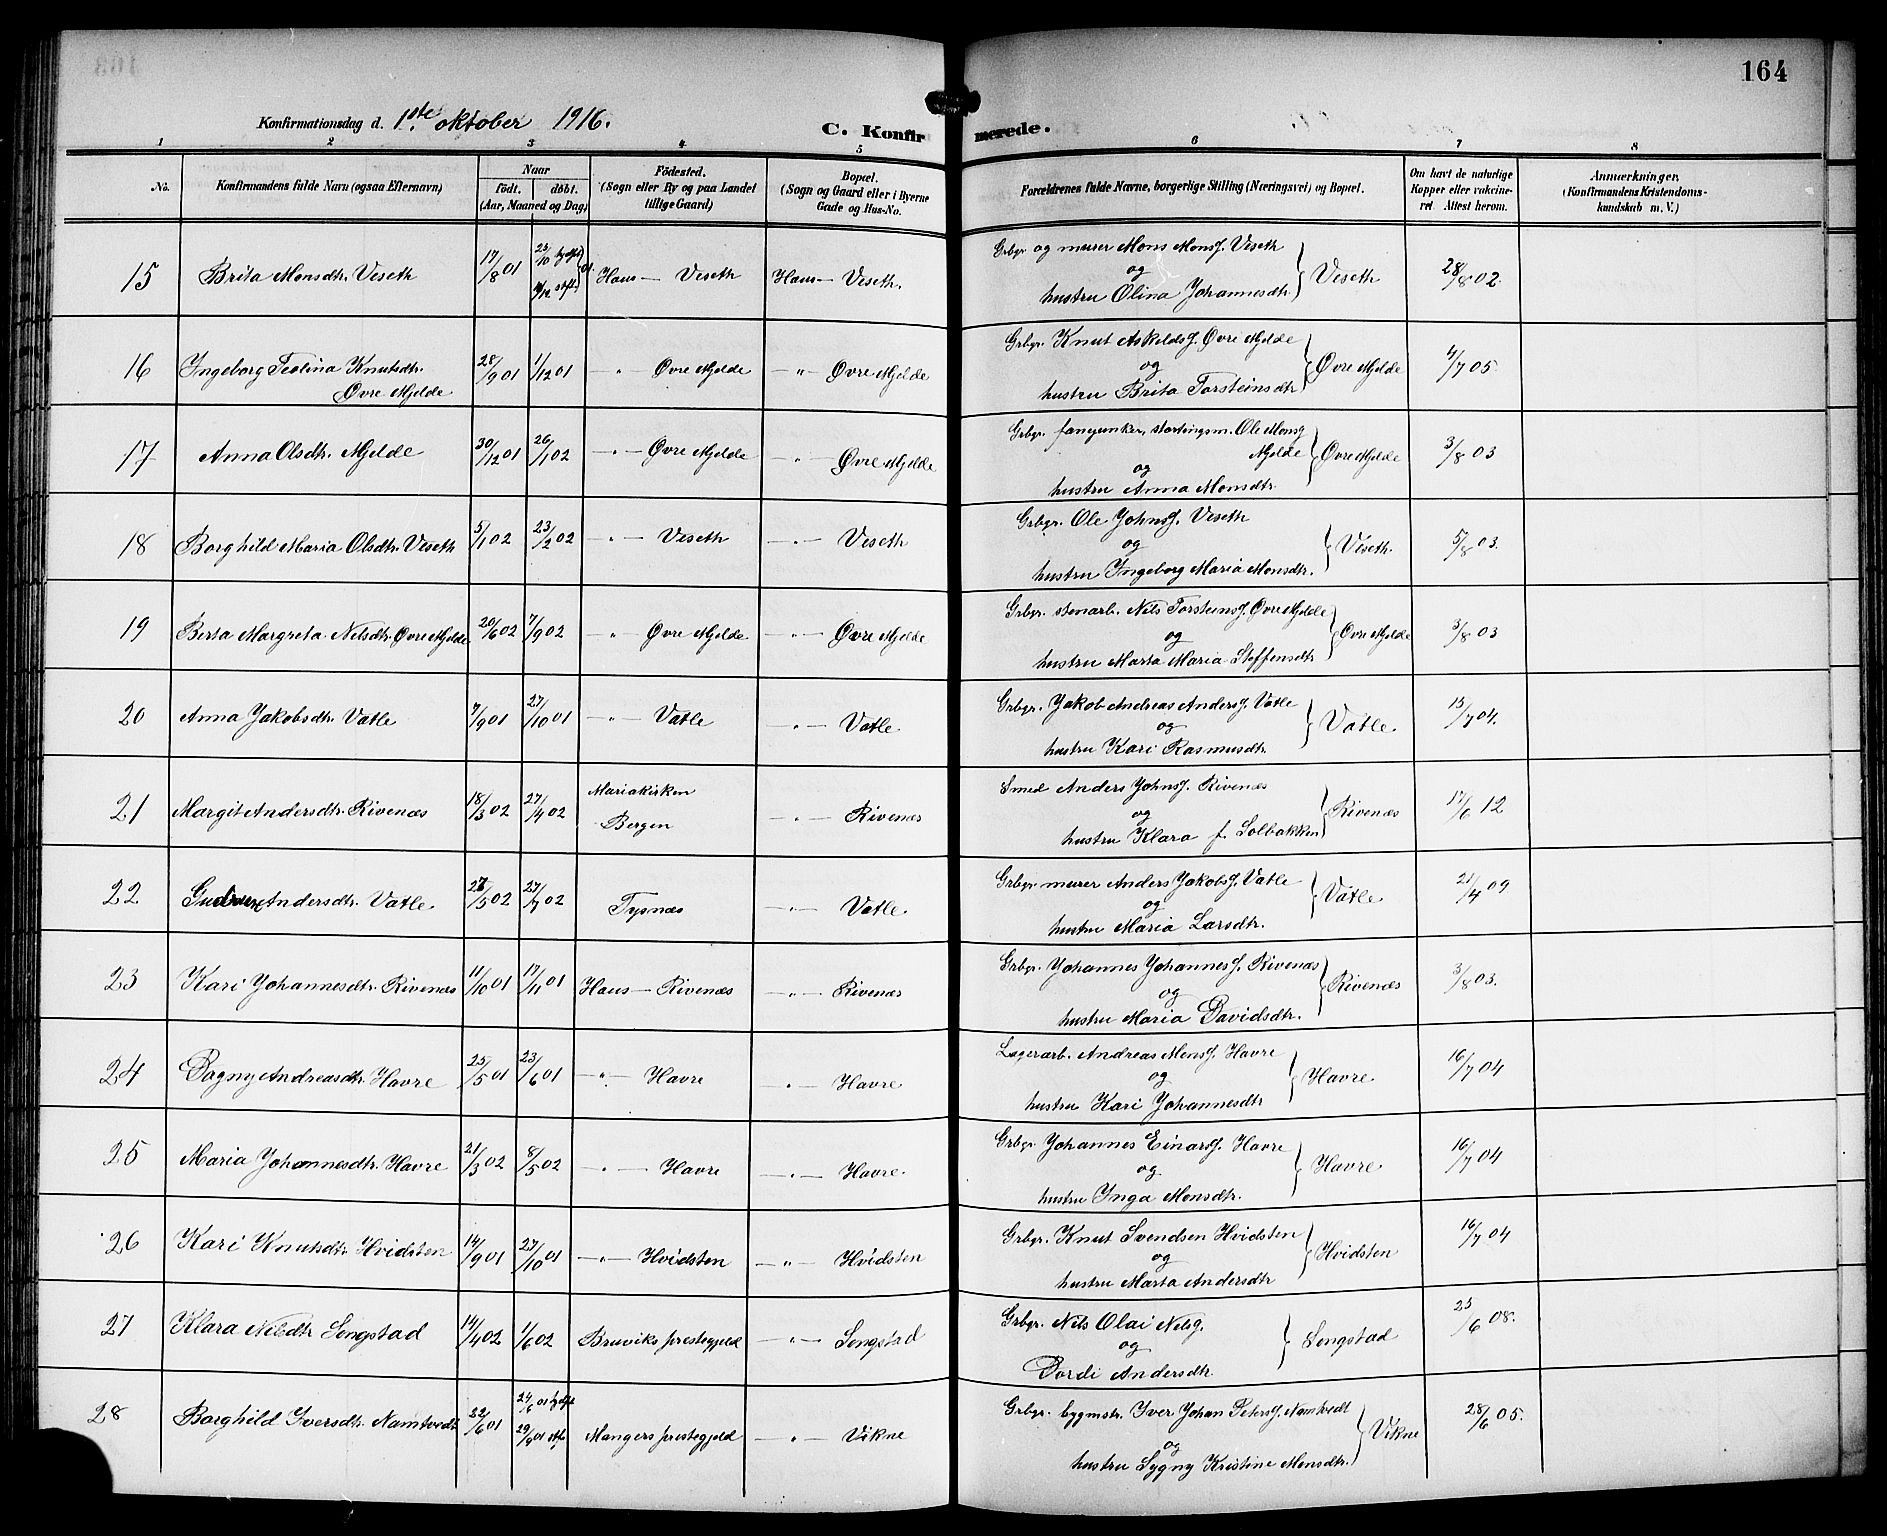 164
Konfirmationsdag d. 1ste oktober 1916.
C. Konfirmerede.
1 2 3 4 5 6 7 8
No.
Konfirmandens fulde Navn (ogsaa Efternavn)
Naar
født. døbt.
(Aar, Maaned og Dag)
Födested.
(Sogn eller By og paa Landet
tillige Gaard)
Bopæl.
(Sogn og Gaard eller i Byerne
Gade og Hus-No.
Forældrenes fulde Navne, borgerlige Stilling (Næringsvei) og Bopæl.
Om havt de naturlige
Kopper eller vakcine-
ret Attest herom.
Anmærkninger,
(Konfirmandens Kristendoms-
kundskab m. V.)
Grbgr. og murer Mons Monsf. Veseth
15 Brita Monsdtr. Veseth 17/8 01 Haus — Veseth Haus — Veseth. og Veseth 28/8 02.
hustru Olina Johannesdtr.
Grbgr. Knut Askildsf. Øvre Mjelde
16 Ingeborg Teolina Knutsdtr. 28/9 01 1/12 01 — " Øvre Mjelde — " — Øvre Mjelde og Øvre Mjelde 4/7 05
Øvre Mjelde
hustru Brita Torsteinsdtr
Grbgr. fanejunker, stortingsm. Ole Monsf
Mjelde
17 Anna Olsdtr. Mjelde 30/12 01 26/1 02 — " — Øvre Mjelde — " — Øvre Mjelde og Øvre Mjelde 3/8 03
hustru Anna Monsdtr.
Grbgr. Ole Johnsf. Veseth
18 Borghild Maria Olsdtr. Veseth 5/1 02 23/2 02 — " — Veseth — " — Veseth og Veseth. 5/8 03.
hustru Ingeborg Maria Monsdtr.
Grbgr. stenarb. Nils Torsteinsf. Øvre Mjelde
19 Berta Margreta Nilsdtr. Øvre Mjelde 20/6 02 7/9 02 — " Øvre Mjelde — " — Øvre Mjelde og Øvre Mjelde 3/8 03
hustru Marta Maria Steffensdtr
Grbgr. Jakob Andreas Andersf. Vatle
20 Anna Jakobsdtr. Vatle 7/9 01 27/10 01 — " — Vatle — " — Vatle. og Vatle. 15/7 04.
hustru Kari Rasmusdtr.
Smed Anders Johnsf. Rivenæs
21 Margit Andersdtr. Rivenæs 18/3 02 27/4 02 Mariakirken
Bergen — " — Rivenæs og Rivenæs 17/6 12
hustru Klara f. Solbakken
Grbgr. murer Anders Jakobsf. Vatle
22 Andersdtr. Vatle /5 02 27/7 02 Tysnæs — " — Vatle. og Vatle. 21/4 09
hustru Maria Larsdtr.
Grbgr. Johannes Johannesf. Rivenæs
23 Kari Johannesdtr. Rivenæs 11/10 01 17/11 01 Haus — Rivenæs — " — Rivenæs og Rivenæs 3/8 03.
hustru Maria Davidsdtr.
Lagerarb. Andreas Monsf. Havre
24 Dagny Andreasdtr. Havre 25/5 01 23/6 01 — " — Havre — " — Havre og Havre 16/7 04
hustru Kari Johannesdtr
Grbgr. Johannes Einarsf. Havre
25 Maria Johannesdtr. Havre 21/3 02 8/5 02 — " — Havre — " — Havre. og Havre 16/7 04
hustru Inga Monsdtr.
Grbgr. Knut Svendsen Hvidsten
26 Kari Knutsdtr. Hvidsten 14/9 01 27/10 01 — " — Hvidsten — " — Hvidsten og Hvidsten 16/7 04
hustru Marta Andersdtr
Grbgr. Nils Olai Nilsf.
27 Klara Nilsdtr Songstad 14/4 02 1/6 02 Bruviks prestegjeld — " — Songstad og Songstad 25/6 08.
Dordi Andersdtr.
Grbgr. bygmstr. Iver Johan Petersf. Namtvedt
28 Borghild Iversdtr. Namtvedt 22/6 01 24/6 01 hjdpt
29/9 01 stf. Mangers prestegjeld — " — Vikne og Vikne 28/6 05.
hustru Sygny Kristine Monsdtr.